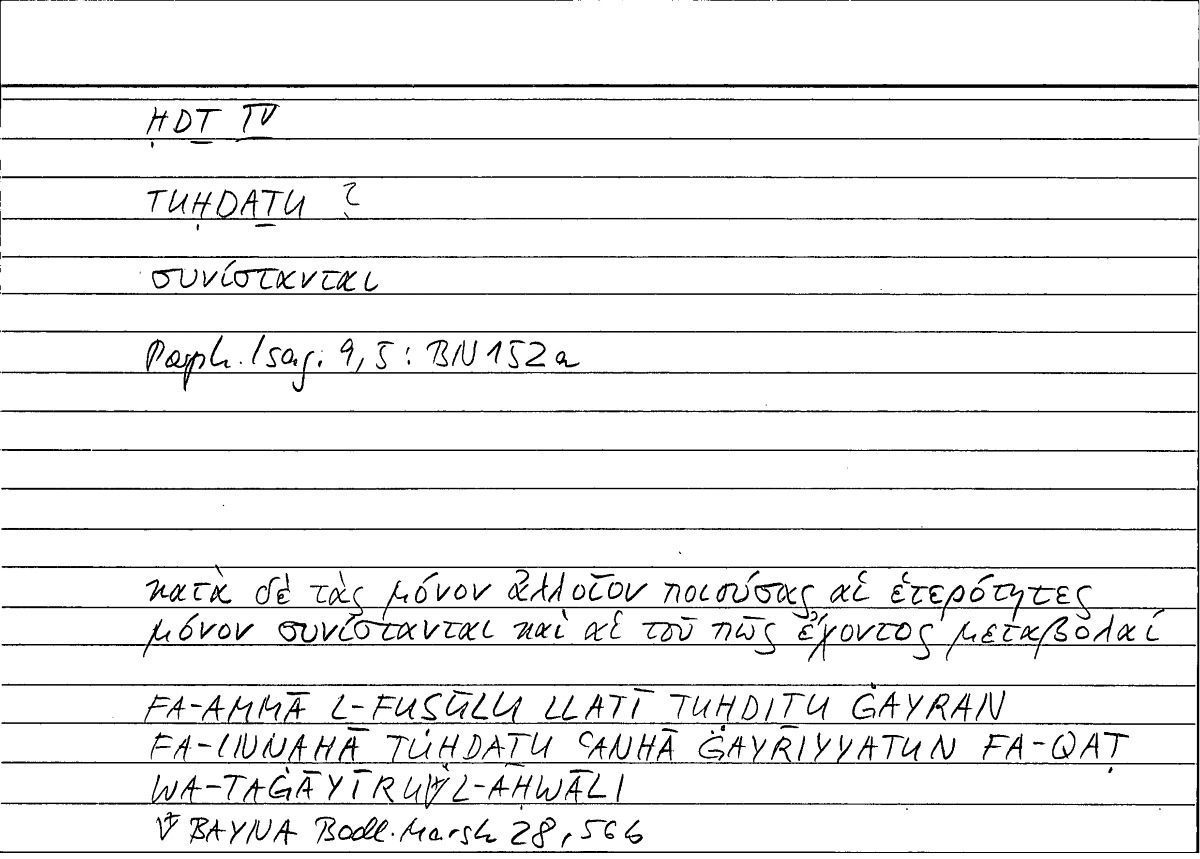 ḤDṮ IV
TUḤDAṮU ?
συνίστανται
Porph. Isag. 9,5 : BN 152a
κατὰ δὲ τὰς μόνον ἀλλοῖον ποιούσας αἱ ἑτερότητες
μόνον συνίστανται καὶ αἱ τοῦ πῶς ἔχοντος μεταβολαί
FA-AMMĀ L-FUṢŪLU LLATĪ TUḤDIṮU ĠAYRAN
FA-INNAHĀ TUḤDAṮU ʿANHĀ ĠAYRIYYATUN FA-QAṬ
WA-TAĠĀYĪRU L-AḤWĀLI
BAYNA Bodl. Marsh 28, 56b